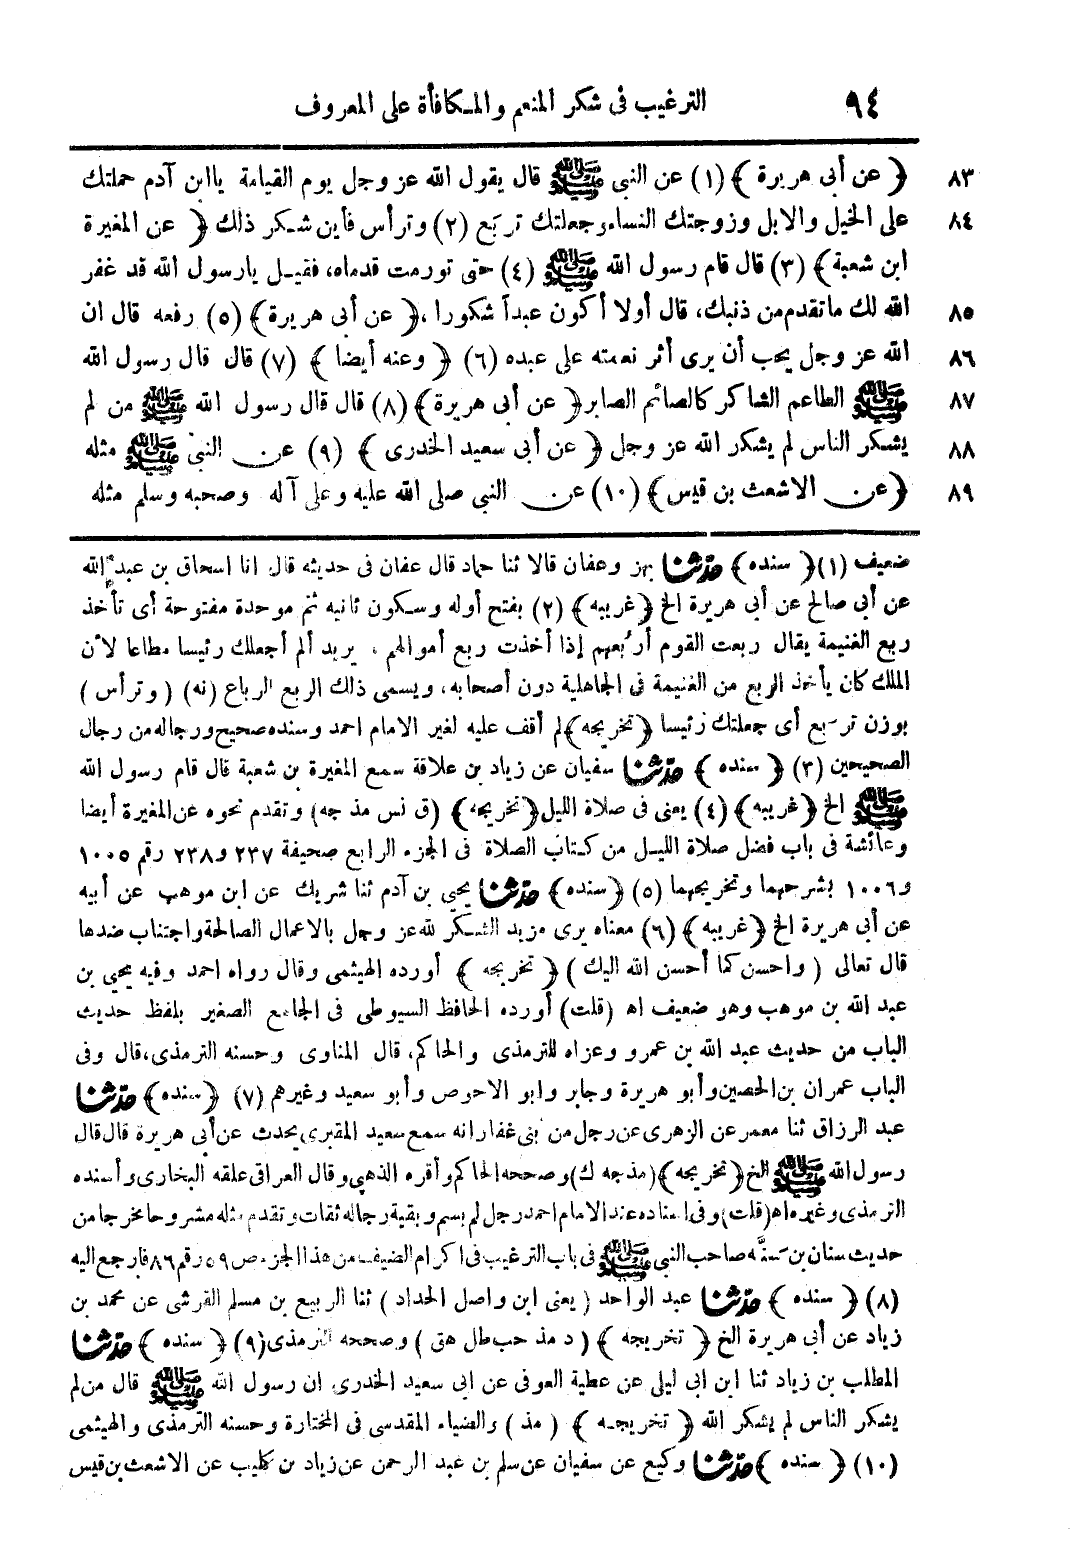 ٩٤ الترغيب فى شكر المنعم والمكافأة على المعروف
٨٣ ﴿ عن أبى هريرة ﴾ (١) عن النبى ﷺ قال يقول الله عز وجل يوم القيامة ياابن آدم حملتك
٨٤ على الخيل والابل وزوجتك النساء وجعلتك تربع (٢) وترأس فأين شكر ذلك ﴿ عن المغيرة
ابن شعبة ﴾ (٣) قال قام رسول الله ﷺ (٤) حتى تورمت قدماه، فقيل يارسول الله قد غفر
٨٥ الله لك ماتقدم من ذنبك، قال أولا أكون عبداً شكورا، ﴿ عن أبى هريرة ﴾ (٥) رفعه قال ان
٨٦ الله عز وجل يحب أن يرى أثر نعمته على عبده (٦) ﴿ وعنه أيضا ﴾ (٧) قال قال رسول الله
٨٧ ﷺ الطاعم الشاكر كالصائم الصابر ﴿ عن أبى هريرة ﴾ (٨) قال قال رسول الله ﷺ من لم
٨٨ يشكر الناس لم يشكر الله عز وجل ﴿ عن أبى سعيد الخدرى ﴾ (٩) عن النبى ﷺ مثله
٨٩ ﴿ عن الاشعث بن قيس ﴾ (١٠) عن النبى صلى الله عليه وعلى آله وصحبه وسلم مثله
ضعيف (١) ﴿ سنده ﴾ حدثنا بهز وعفان قالا ثنا حماد قال عفان فى حديثه قال انا اسحاق بن عبد الله
عن أبى صالح عن أبى هريرة الخ ﴿ غريبه ﴾ (٢) بفتح أوله وسكون ثانيه ثم موحدة مفتوحة أى تأخذ
ربع الغنيمة يقال ربعت القوم أربُعهم إذا أخذت ربع أموالهم ، يريد ألم أجعلك رئيسا مطاعا لأن
الملك كان يأخذ الربع من الغنيمة فى الجاهلية دون أصحابه، ويسمى ذلك الربع الرباع (نه) ( وترأس )
بوزن تربع أى جعلتك رئيسا ﴿ تخريجه ﴾ لم أقف عليه لغير الامام احمد وسنده صحيح ورجاله من رجال
الصحيحين (٣) ﴿ سنده ﴾ حدثنا سفيان عن زياد بن علاقة سمع المغيرة بن شعبة قال قام رسول الله
ﷺ الخ ﴿ غريبه ﴾ (٤) يعنى فى صلاة الليل ﴿ تخريجه ﴾ (ق نس مذ جه) وتقدم نحوه عن المغيرة أيضا
وعائشة فى باب فضل صلاة الليل من كتاب الصلاة فى الجزء الرابع صحيفة ٢٣٧ و ٢٣٨ رقم ١٠٠٥
و ١٠٠٦ بشرحهما وتخريجهما (٥) ﴿ سنده ﴾ حدثنا يحيى بن آدم ثنا شريك عن ابن موهب عن أبيه
عن أبى هريرة الخ ﴿ غريبه ﴾ (٦) معناه يرى مزيد الشكر لله عز وجل بالاعمال الصالحة واجتناب ضدها
قال تعالى ( واحسن كما أحسن الله اليك ) ﴿ تخريجه ﴾ أورده الهيثمى وقال رواه احمد وفيه يحيى بن
عبد الله بن موهب وهو ضعيف اه (قلت) أورده الحافظ السيوطى فى الجامع الصغير بلفظ حديث
الباب من حديث عبد الله بن عمرو وعزاه للترمذى والحاكم، قال المناوى وحسنه الترمذى، قال وفى
الباب عمران بن الحصين وأبو هريرة وجابر وابو الاحوص وأبو سعيد وغيرهم (٧) ﴿ سنده ﴾ حدثنا
عبد الرزاق ثنا معمر عن الزهرى عن رجل من بنى غفار انه سمع سعيد المقبرى يحدث عن أبى هريرة قال قال
رسول الله ﷺ الخ ﴿ تخريجه ﴾ (مذ جه ك) وصححه الحاكم وأقره الذهبى وقال العراقى علقه البخارى وأسنده
الترمذى وغيره اه (قلت) وفى اسناده عند الامام احمد رجل لم يسم وبقية رجاله ثقات وتقدم مثله مشروحا مخرجا من
حديث سنان بن سنَّه صاحب النبى ﷺ فى باب الترغيب فى اكرام الضيف من هذا الجزء ص ٥٩ رقم ٨٦ فارجع اليه
(٨) ﴿ سنده ﴾ حدثنا عبد الواحد ( يعنى ابن واصل الحداد ) ثنا الربيع بن مسلم القرشى عن محمد بن
زياد عن أبى هريرة الخ ﴿ تخريجه ﴾ ( د مذ حب طل هق ) وصححه الترمذى (٩) ﴿ سنده ﴾ حدثنا
المطلب بن زياد ثنا ابن ابى ليلى عن عطية العوفى عن ابى سعيد الخدرى ان رسول الله ﷺ قال من لم
يشكر الناس لم يشكر الله ﴿ تخريجه ﴾ ( مذ ) والضياء المقدسى فى المختارة وحسنه الترمذى والهيثمى
(١٠) ﴿ سنده ﴾ حدثنا وكيع عن سفيان عن سلم بن عبد الرحمن عن زياد بن كليب عن الاشعث بن قيس